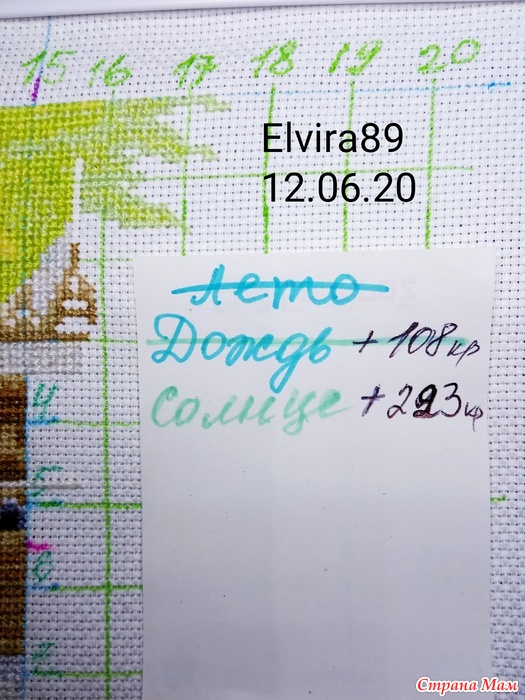 15 16 17 18 19 20
Elvira89
12.06.20
Лето
Дождь +108кр
Солнце +223кр
4
5
6
7
Страна Мам